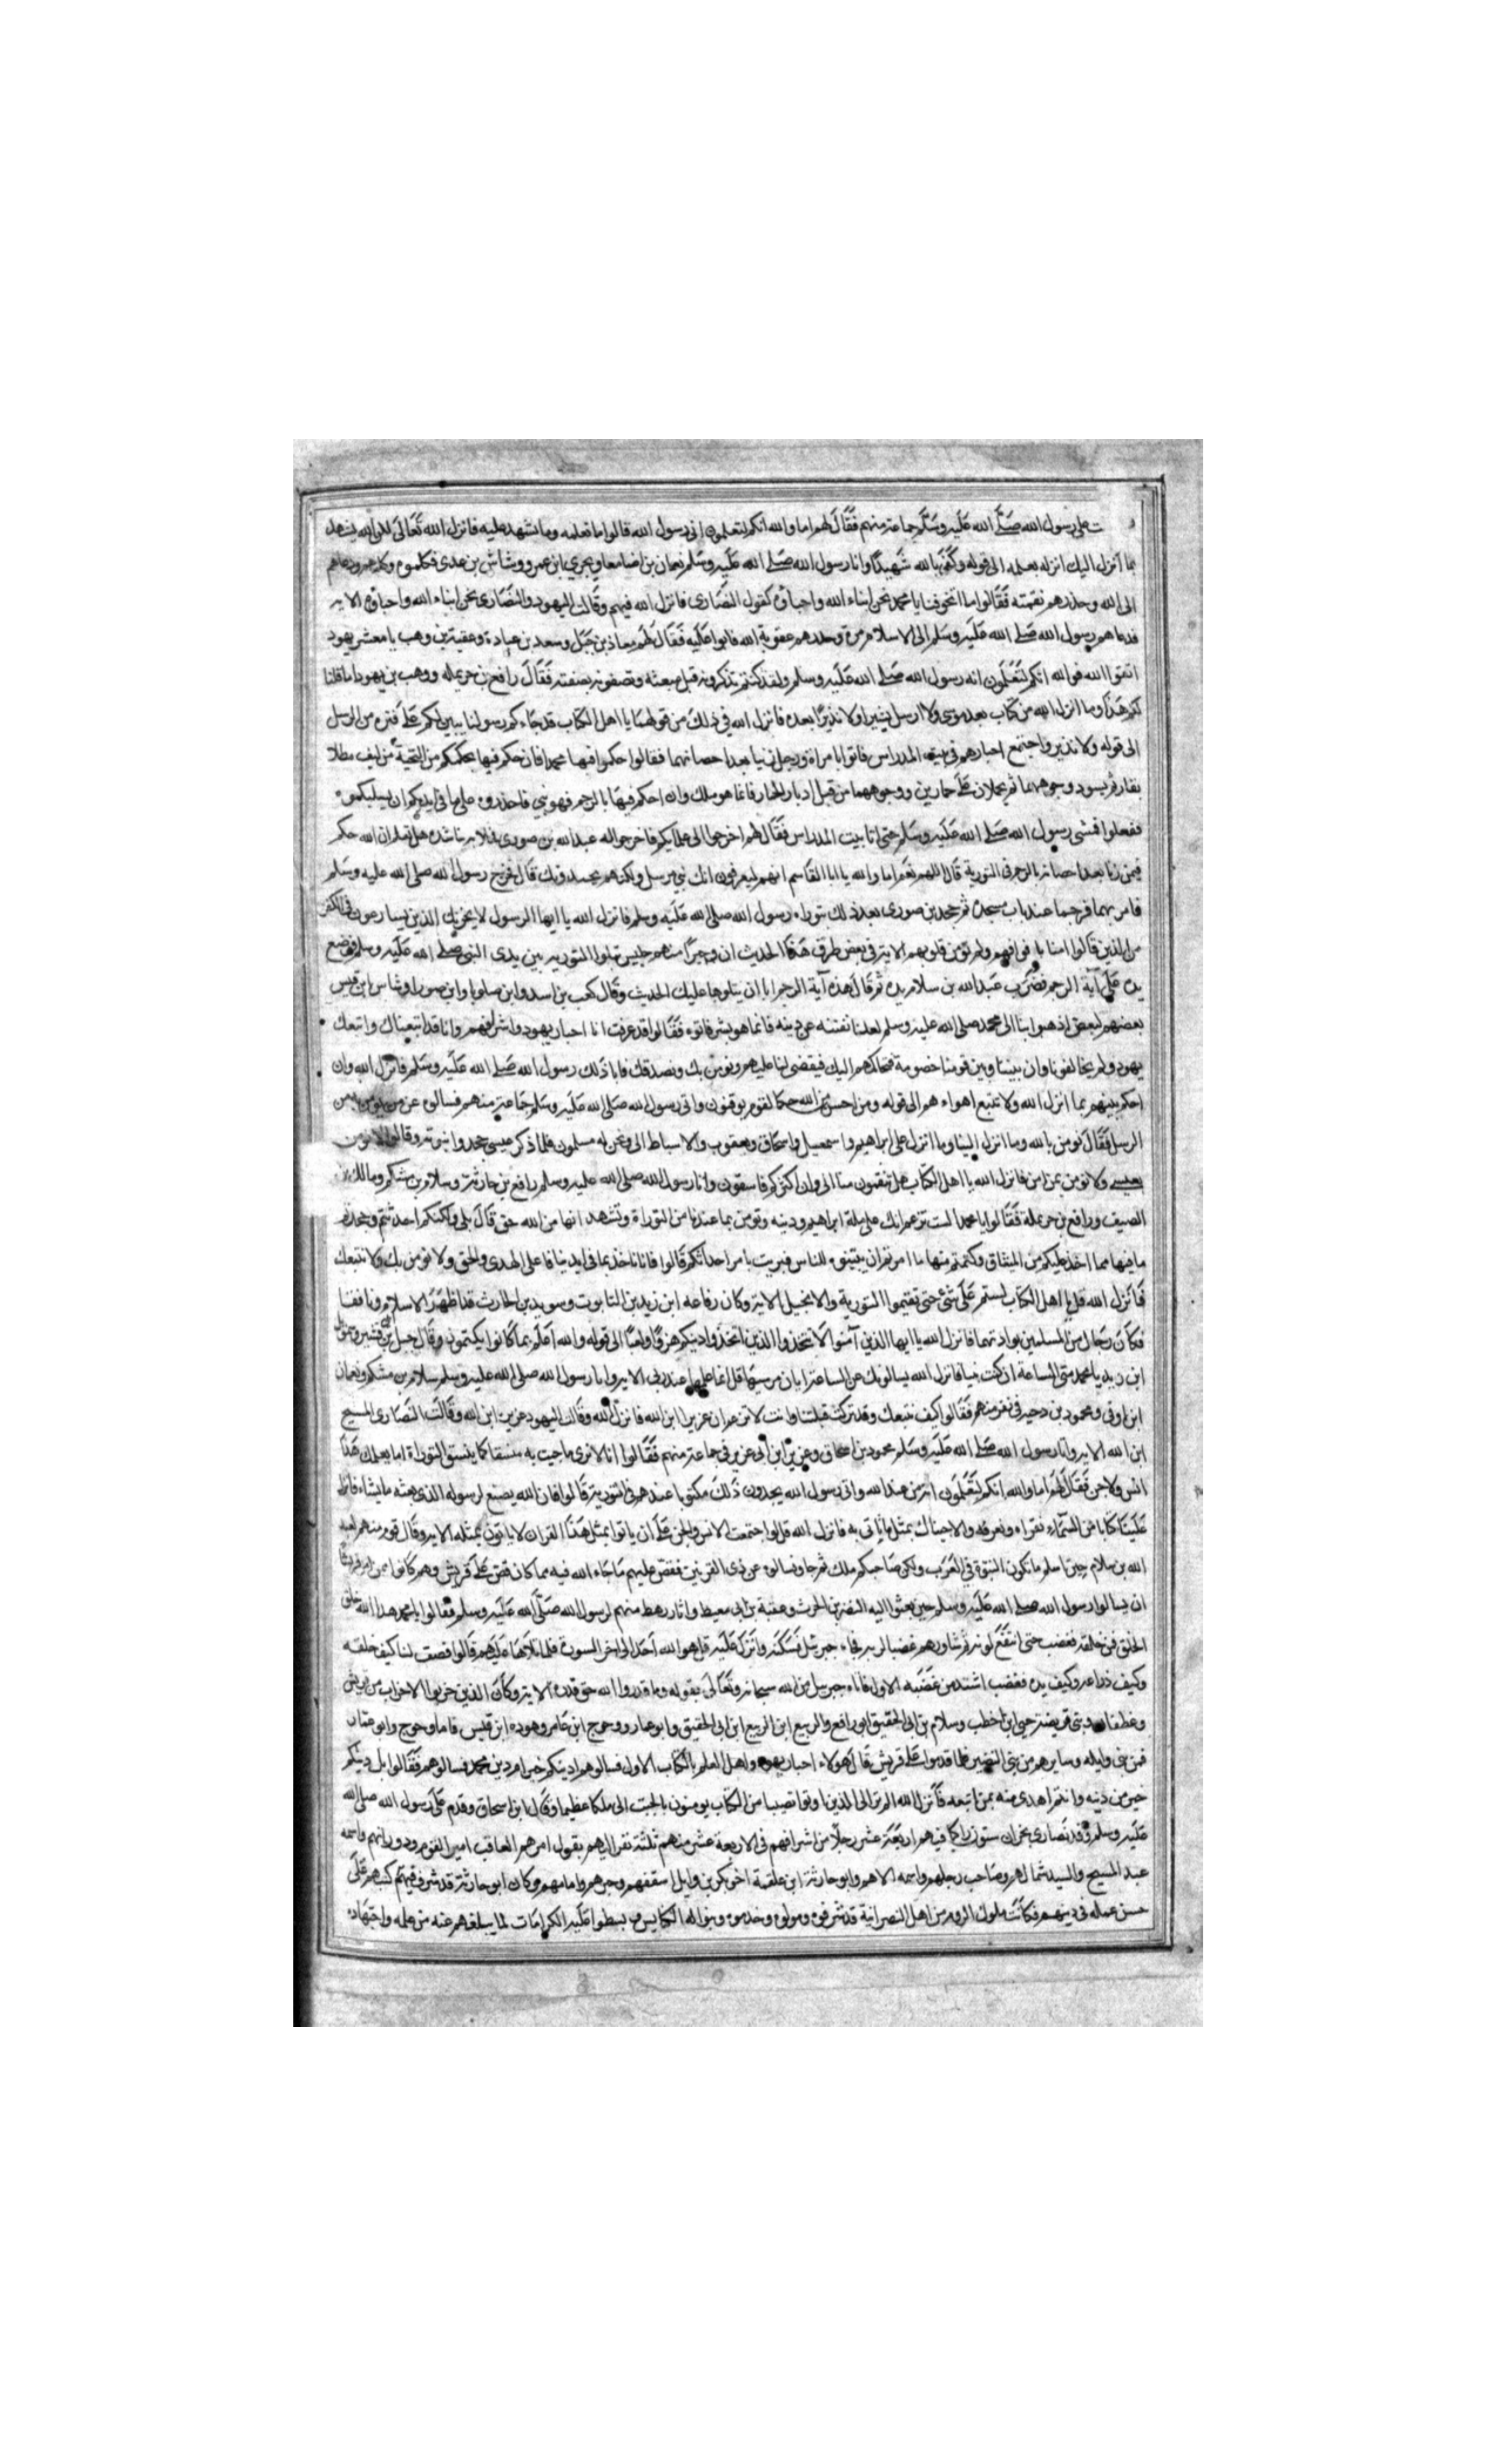 على رسول الله صلى الله عليه وسلم جماعة منهم فقال لهم اما والله انكم لتعلمون انى رسول الله قالوا ما نعلمه وما نشهد عليه فانزل الله تعالى لكن الله يشهد
بما أنزل اليك انزله بعلمه الى قوله وكفى بالله شهيدًا واتا رسول الله صلى الله عليه وسلم نعمان بن اضا معاو بحري ابن عمرو وشاش بن عدى فكلموه وكلمهم ودعاهم
الى الله وحذرهم نقمته فقالوا ما تخوفنا يا محمد نحن ابناء الله واحباؤه كقول النصارى فانزل الله فيهم وقالت اليهود والنصارى نحن ابناء الله واحباؤه الاية
فدعاهم رسول الله صلى الله عليه وسلم الى الاسلام مرة وحذرهم عقوبة الله فابوا عليه فقال لهم معاذ بن جبل وسعد بن عبادة وعقبة بن وهب يا معشر يهود
اتقوا الله فوالله انكم لتعلمون انه رسول الله صلى الله عليه وسلم ولقد كنتم تذكرونه قبل مبعثه وتصفونه بصفته فقال رافع بن حريمله ووهب بن يهودا ما قلنا
لكم هذا وما انزل الله من كتاب بعد موسى ولا ارسل بشيرا ولا نذيرًا بعده فانزل الله في ذلك من قولهما يا اهل الكتاب قد جاءكم رسولنا يبين لكم على فترة من الرسل
الى قوله ولا نذير واجتمع احبارهم في بيت المدراس فاتوا بامراة ورجل زنيا بعد احصانهما فقالوا حكموا فيهما محمدا فان حكم فيها بحكمكم من التجبية من ليف مطلا
بقار ثم يسود وجوههما ثم يحملان على حمارين ووجوههما من قبل ادبار الحمار فانما هو ملك وان احكم فيها بالرجم فهو نبي فاحذروه على ما في ايديكم ان يسلبكموه
ففعلوا فمشى رسول الله صلى الله عليه وسلم حتى اتا بيت المدراس فقال لهم اخرجوا الى علمايكم فاخرجوا له عبد الله بن صورى فخلا به يناشده هل تعلم ان الله حكم
فيمن زنا بعد احصانه بالرجم في التورية قال اللهم نعم اما والله يا ابا القاسم انهم ليعرفون انك نبي مرسل ولكنهم يحسدونك قال فخرج رسول الله صلى الله عليه وسلم
فامر بهما فرجما عند باب مسجده ثم جحد بن صورى بعد ذلك بنبوة رسول الله صلى الله عليه وسلم فانزل الله يا ايها الرسول لا يحزنك الذين يسارعون في الكفر
من الذين قالوا امنا بافواههم ولم تؤمن قلوبهم الاية في بعض طرق هذا الحديث ان حبرًا منهم جلس يتلوا التورية بين يدى النبي صلى الله عليه وسلم فوضع
يده على آية الرجم فضرب عبد الله بن سلام يده ثم قال هذه آية الرجم ابا ان يتلوها عليك الحديث وقال كعب بن اسد وابن صلوبا وابن صورا وشاس ابن قيس
بعضهم لبعض اذهبوا بنا الى محمد صلى الله عليه وسلم لعلنا نفتنه عن دينه فانما هو بشر فاتوه فقالوا قد عرفت انا احبار يهود واشرافهم وانا قد اتبعناك واتبعك
يهود ولم يخالفونا وان بيننا وبين قومنا خصومة فنحاكمهم اليك فيقضى لنا عليهم ونومن بك ونصدقك فابا ذلك رسول الله صلى الله عليه وسلم فانزل الله وان
احكم بينهم بما انزل الله ولا تتبع اهواءهم الى قوله ومن احسن من الله حكما لقوم يوقنون واتى رسول الله صلى الله عليه وسلم جماعة منهم فسالوه عن من يومن به من
الرسل فقال نومن بالله وما انزل الينا وما انزل على ابراهيم واسمعيل واسحاق ويعقوب والاسباط الى ونحن له مسلمون فلما ذكر عيسى جحدوا نبوته وقالوا لا نومن
بعيسى ولا نومن بمن امن فانزل الله يا اهل الكتاب هل تنقمون منا الى وان اكثركم فاسقون واتا رسول الله صلى الله عليه وسلم رافع بن حارثة وسلام بن مشكم ومالك بن
الصيف ورافع بن حريملة فقالوا يا محمد الست تزعم انك على ملة ابراهيم ودينه وتومن بما عندنا من التوراة وتشهد انها من الله حق قال بلى ولكنكم احدثتم وجحدتم
ما فيها مما اخذ عليكم من الميثاق وكتمتم منها ما امرتم ان تبينوه للناس فبريت يا من احداثكم قالوا فانا ناخذ بما في ايدينا فانا على الهدى والحق ولا نومن بك ولا نتبعك
فانزل الله قل يا اهل الكتاب لستم على شئ حتى تقيموا التورية والانجيل الاية وكان رفاعة ابن زيد بن التابوت وسويد بن الحارث قد اظهرا الاسلام ونافقا
فكان رجال من المسلمين يوادونهما فانزل الله يا ايها الذين آمنوا لا تتخذوا الذين اتخذوا دينكم هزوًا ولعبًا الى قوله والله اعلم بما كانوا يكتمون وقال جبل بن قشير وشمول
ابن زيد يا محمد متى الساعة ان كنت نبيا فانزل الله يسالونك عن الساعة ايان مرسيها قل انما علمها عند ربي الاية واتا رسول الله صلى الله عليه وسلم سلام بن مشكم ونعمان
ابن اوفى ومحمود بن دحية في نفر منهم فقالوا كيف نتبعك وقد تركت قبلتنا وانت لا تزعم ان عزيرا ابن الله فانزل الله وقالت اليهود عزير ابن الله وقالت النصارى المسيح
ابن الله الاية واتا رسول الله صلى الله عليه وسلم محمود بن اسحاق وعزيز ابن ابى عزيز في جماعة منهم فقالوا انا لا نرى ما جيت به متسقا كما يتسق التوراة اما يعلمك هذا
انس ولا جن فقال لهم اما والله انكم لتعلمون انه من عند الله وانى رسول الله يجدون ذلك مكتوبا عندهم في التورية قالوا فان الله يصنع لرسوله الذى بعثه ما يشاء فانزل
علينا كتابا من السماء نقراه ونعرفه والا جيناك بمثل ما تاتى به فانزل الله قل لو اجتمعت الانس والجن على ان ياتوا بمثل هذا القران لا ياتون بمثله الاية وقال قوم منهم لعبد
الله بن سلام حين اسلم ما تكون النبوة في العرب ولكن صاحبكم ملك ثم جاؤ فسالوه عن ذى القرنين فقص عليهم ما جاءه الله فيه مما كان قص على قريش وهم كانوا ممن امر قريشا
ان يسالوا رسول الله صلى الله عليه وسلم حين بعثوا اليه النضر بن الحرث وعقبة بن ابي معيط واتا رهط منهم لرسول الله صلى الله عليه وسلم فقالوا يا محمد هذا الله خلق
الخلق فمن خلقه فغضب حتى انتقع لونه ثم شاورهم غضبا لربه فجاءه جبرئيل فسكنه وانزل عليه قل هو الله احد الى اخر السورة فلما تلاها عليهم قالوا فصف لنا كيف خلقه
وكيف ذراعه وكيف يده فغضب اشد من غضبه الاول فاتاه جبريل من الله سبحانه وتعالى بقوله وما قدروا الله حق قدره الاية وكان الذين حزبوا الاحزاب من قريش
وغطفان وبنى قريضة حيي ابن اخطب وسلام بن ابى الحقيق ابو رافع والربيع ابن الربيع ابن ابى الحقيق وابو عمار ووحوج ابن عامر وهوذه ابن قيس فاما وحوج وابو عمار
فمن بنى وايله وسايرهم من بنى النضير فلما قدموا على قريش قال هولاء احبار يهود واهل العلم بالكتاب الاول فسالوهم ادينكم خير ام دين محمد فسالوهم فقالوا بل دينكم
خير من دينه وانتم اهدى منه بمن اتبعه فانزل الله الم تر الى الذين اوتوا نصيبا من الكتاب يومنون بالجبت الى ملكا عظيما وقال ابن اسحاق وقدم على رسول الله صلى الله
عليه وسلم وفد نصارى نجران ستون راكبا فيهم اربعة عشر رجلًا من اشرافهم في الاربعة عشر منهم ثلثة نفر اليهم يقول امرهم العاقب امير القوم وذو رايهم واسمه
عبد المسيح والسيد ثمالهم وصاحب رحلهم واسمه الايهم وابو حارثة ابن علقمة اخو بكر بن وايل اسقفهم وحبرهم وامامهم وكان ابو حارثة قد شرف فيهم كتبهم على
حسن عمله في دينهم فكانت ملوك الروم من اهل النصرانية قد شرفوه ومولوه وخدموه وبنوا له الكنايس وبسطوا عليه الكرامات لما يبلغهم عنه من علمه واجتهاده